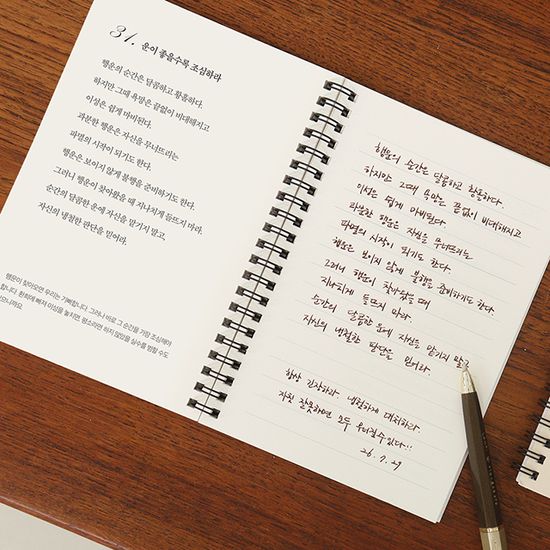 31. 운이 좋을수록 조심하라
행운의 순간은 달콤하고 황홀하다.
하지만 그때 욕망은 끝없이 비대해지고
이성은 쉽게 마비된다.
과분한 행운은 자신을 무너뜨리는
파멸의 시작이 되기도 한다.
행운은 보이지 않게 불행을 준비하기도 한다.
그러니 행운이 찾아왔을 때 지나치게 들뜨지 마라.
순간의 달콤한 운에 자신을 맡기지 말고,
자신의 냉철한 판단을 믿어라.
행운이 찾아오면 우리는 기뻐합니다. 그러나 바로 그 순간을 가장 조심해야
합니다. 환희에 빠져 이성을 놓치면, 평소라면 하지 않았을 실수를 범할 수도
있으니까요.
행운의 순간은 달콤하고 황홀하다.
하지만 그때 욕망은 끝없이 비대해지고
이성은 쉽게 마비된다.
과분한 행운은 자신을 무너뜨리는
파멸의 시작이 되기도 한다.
행운은 보이지 않게 불행을 준비하기도 한다
그러니 행운이 찾아왔을 때
지나치게 들뜨지 마라.
순간의 달콤한 운에 자신을 맡기지 말고
자신의 냉철한 판단을 믿어라.
항상 긴장하라. 냉철하게 대처하라.
자칫 잘못하면 모두 무너질 수 있다..!
26. 7. 29